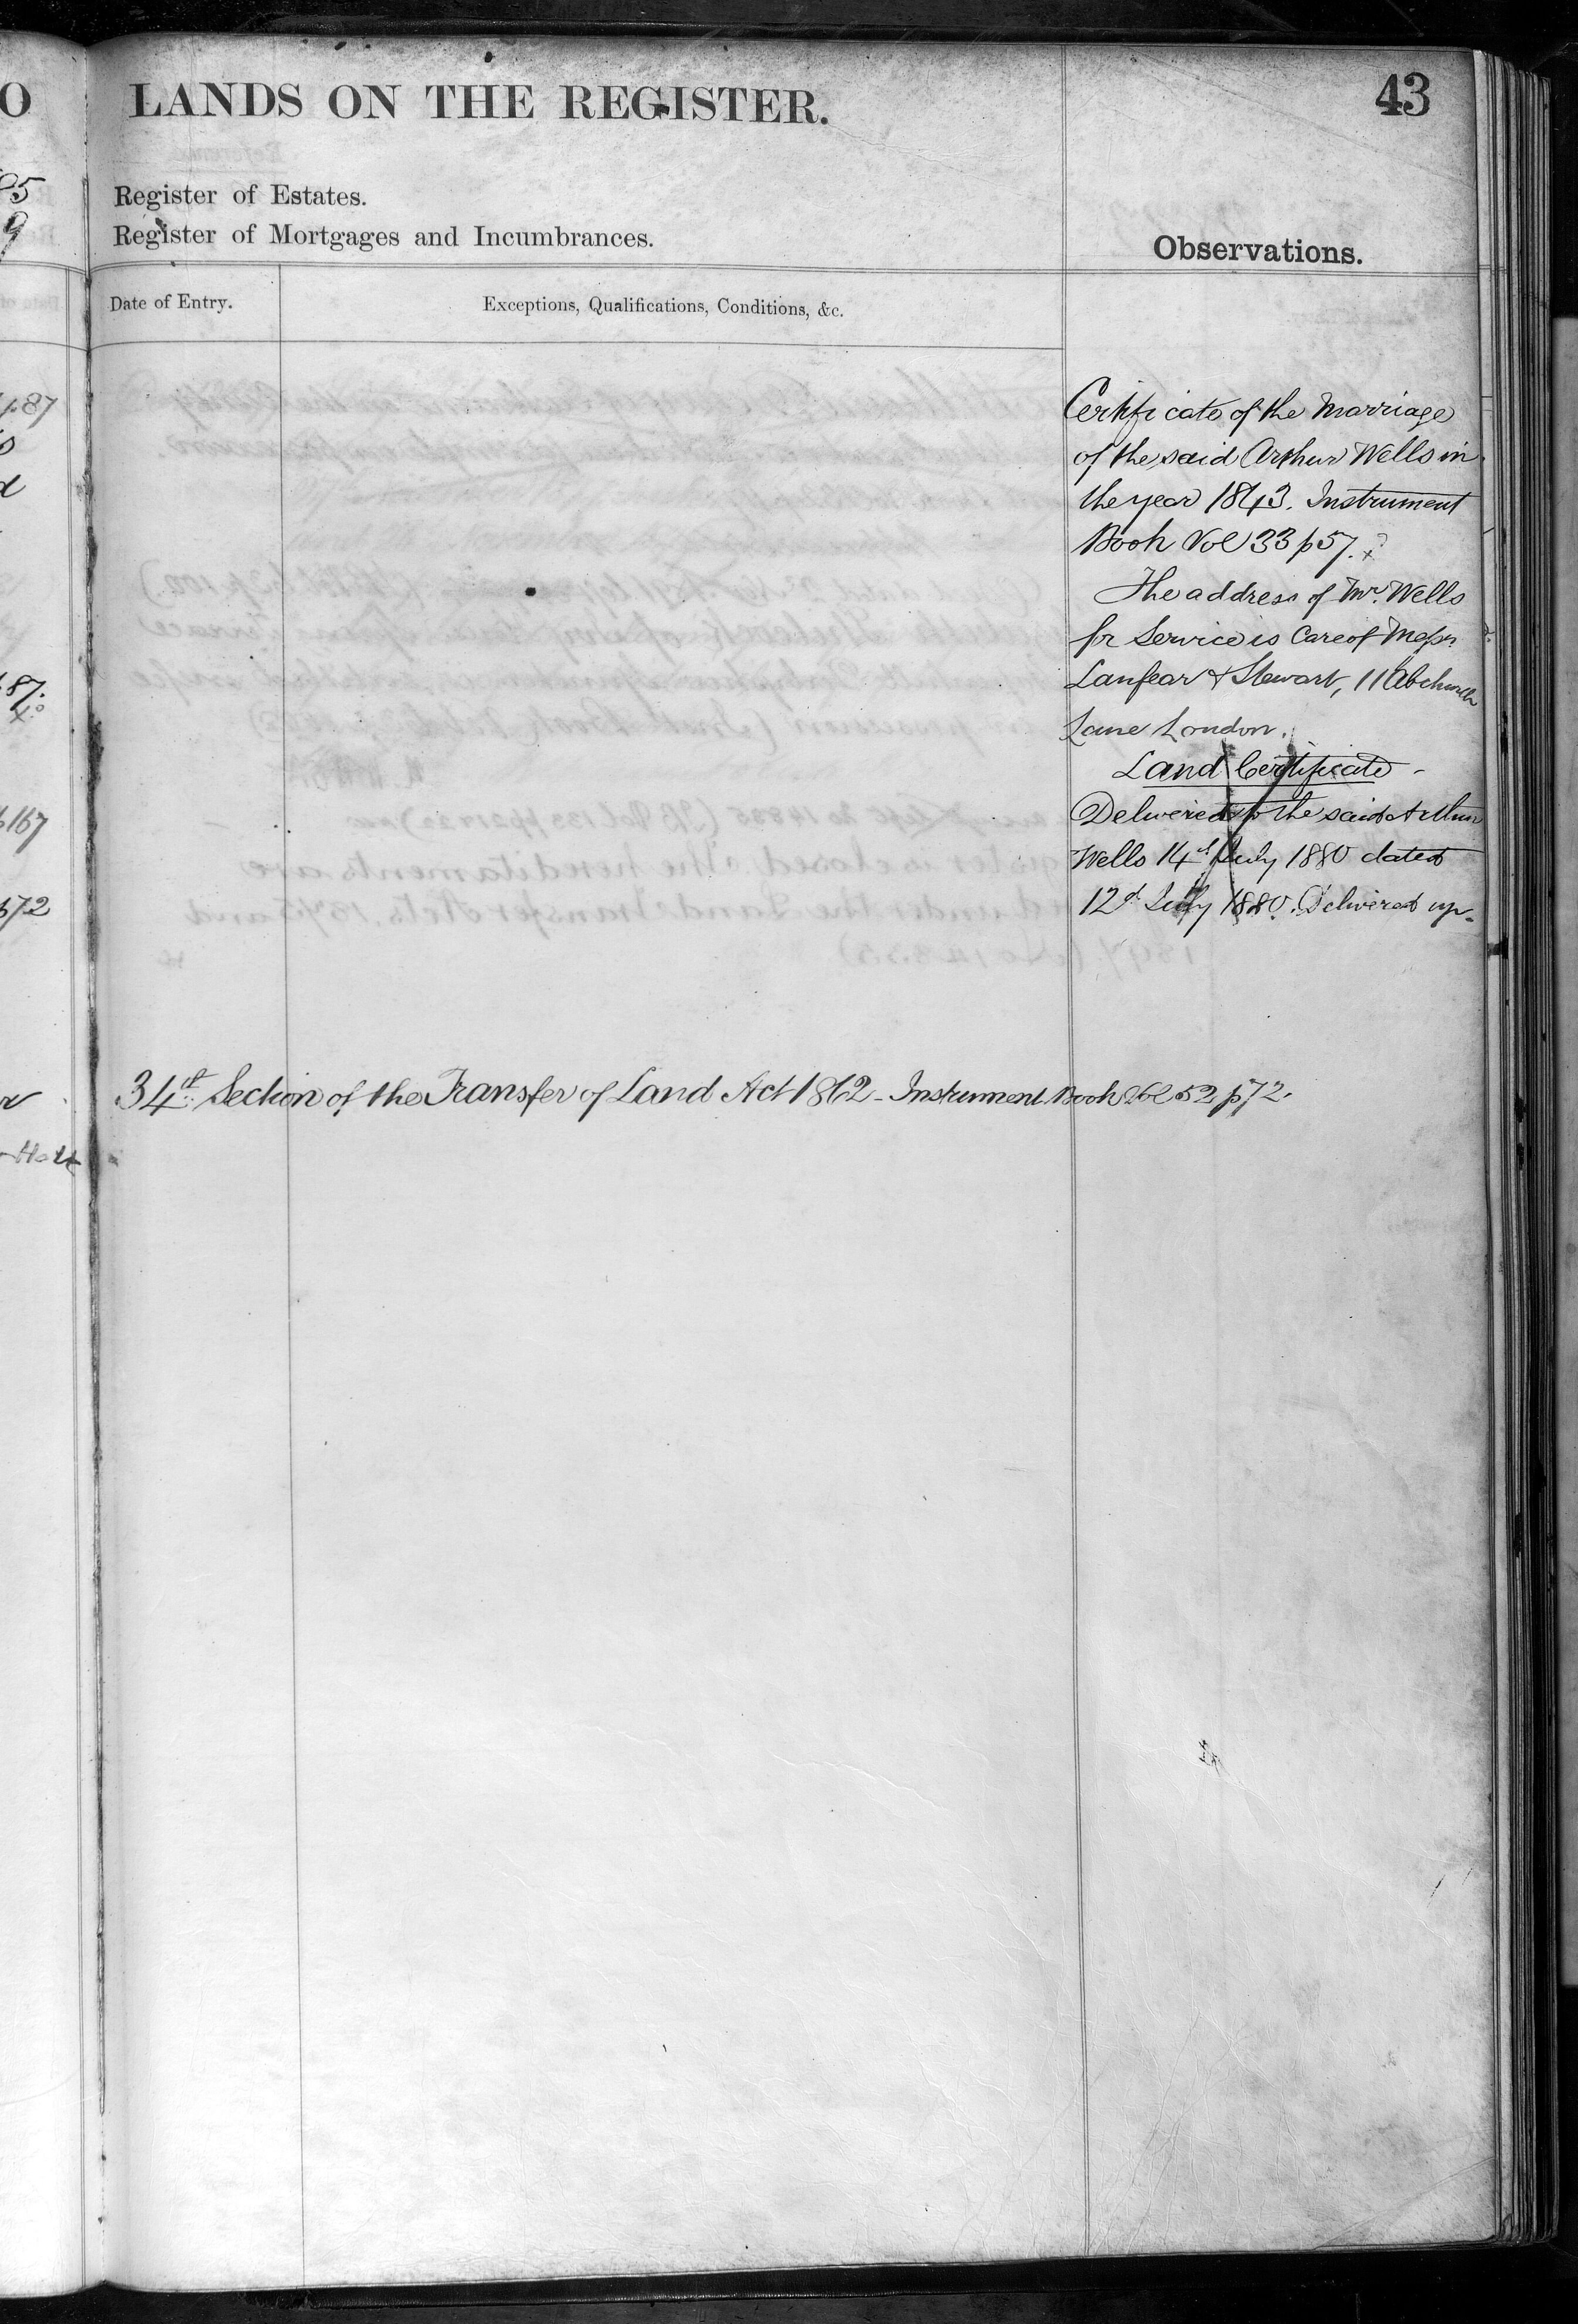 LANDS ON THE REGISTER.
43
Register of Estates.
Register of Mortgages and Incumbrances.
Observations.
Date of Entry.
Exceptions, Qualifications, Conditions, &c.
Certificate of the Marriage
of the said Arthur Wells in
the year 1843. Instrument
Book Vol 33 p57.
The address of Mr. Wells
for Service is Care of Messrs
Lanfear & Stewart, 11 Abchurch
Lane London.
Land Certificate -
Delivered to the said Arthur
Wells 14th July 1880 dated
12th July 1880. Delivered up.
34th Section of the Transfer of Land Act 1862 - Instrument Book Vol 52 p72.